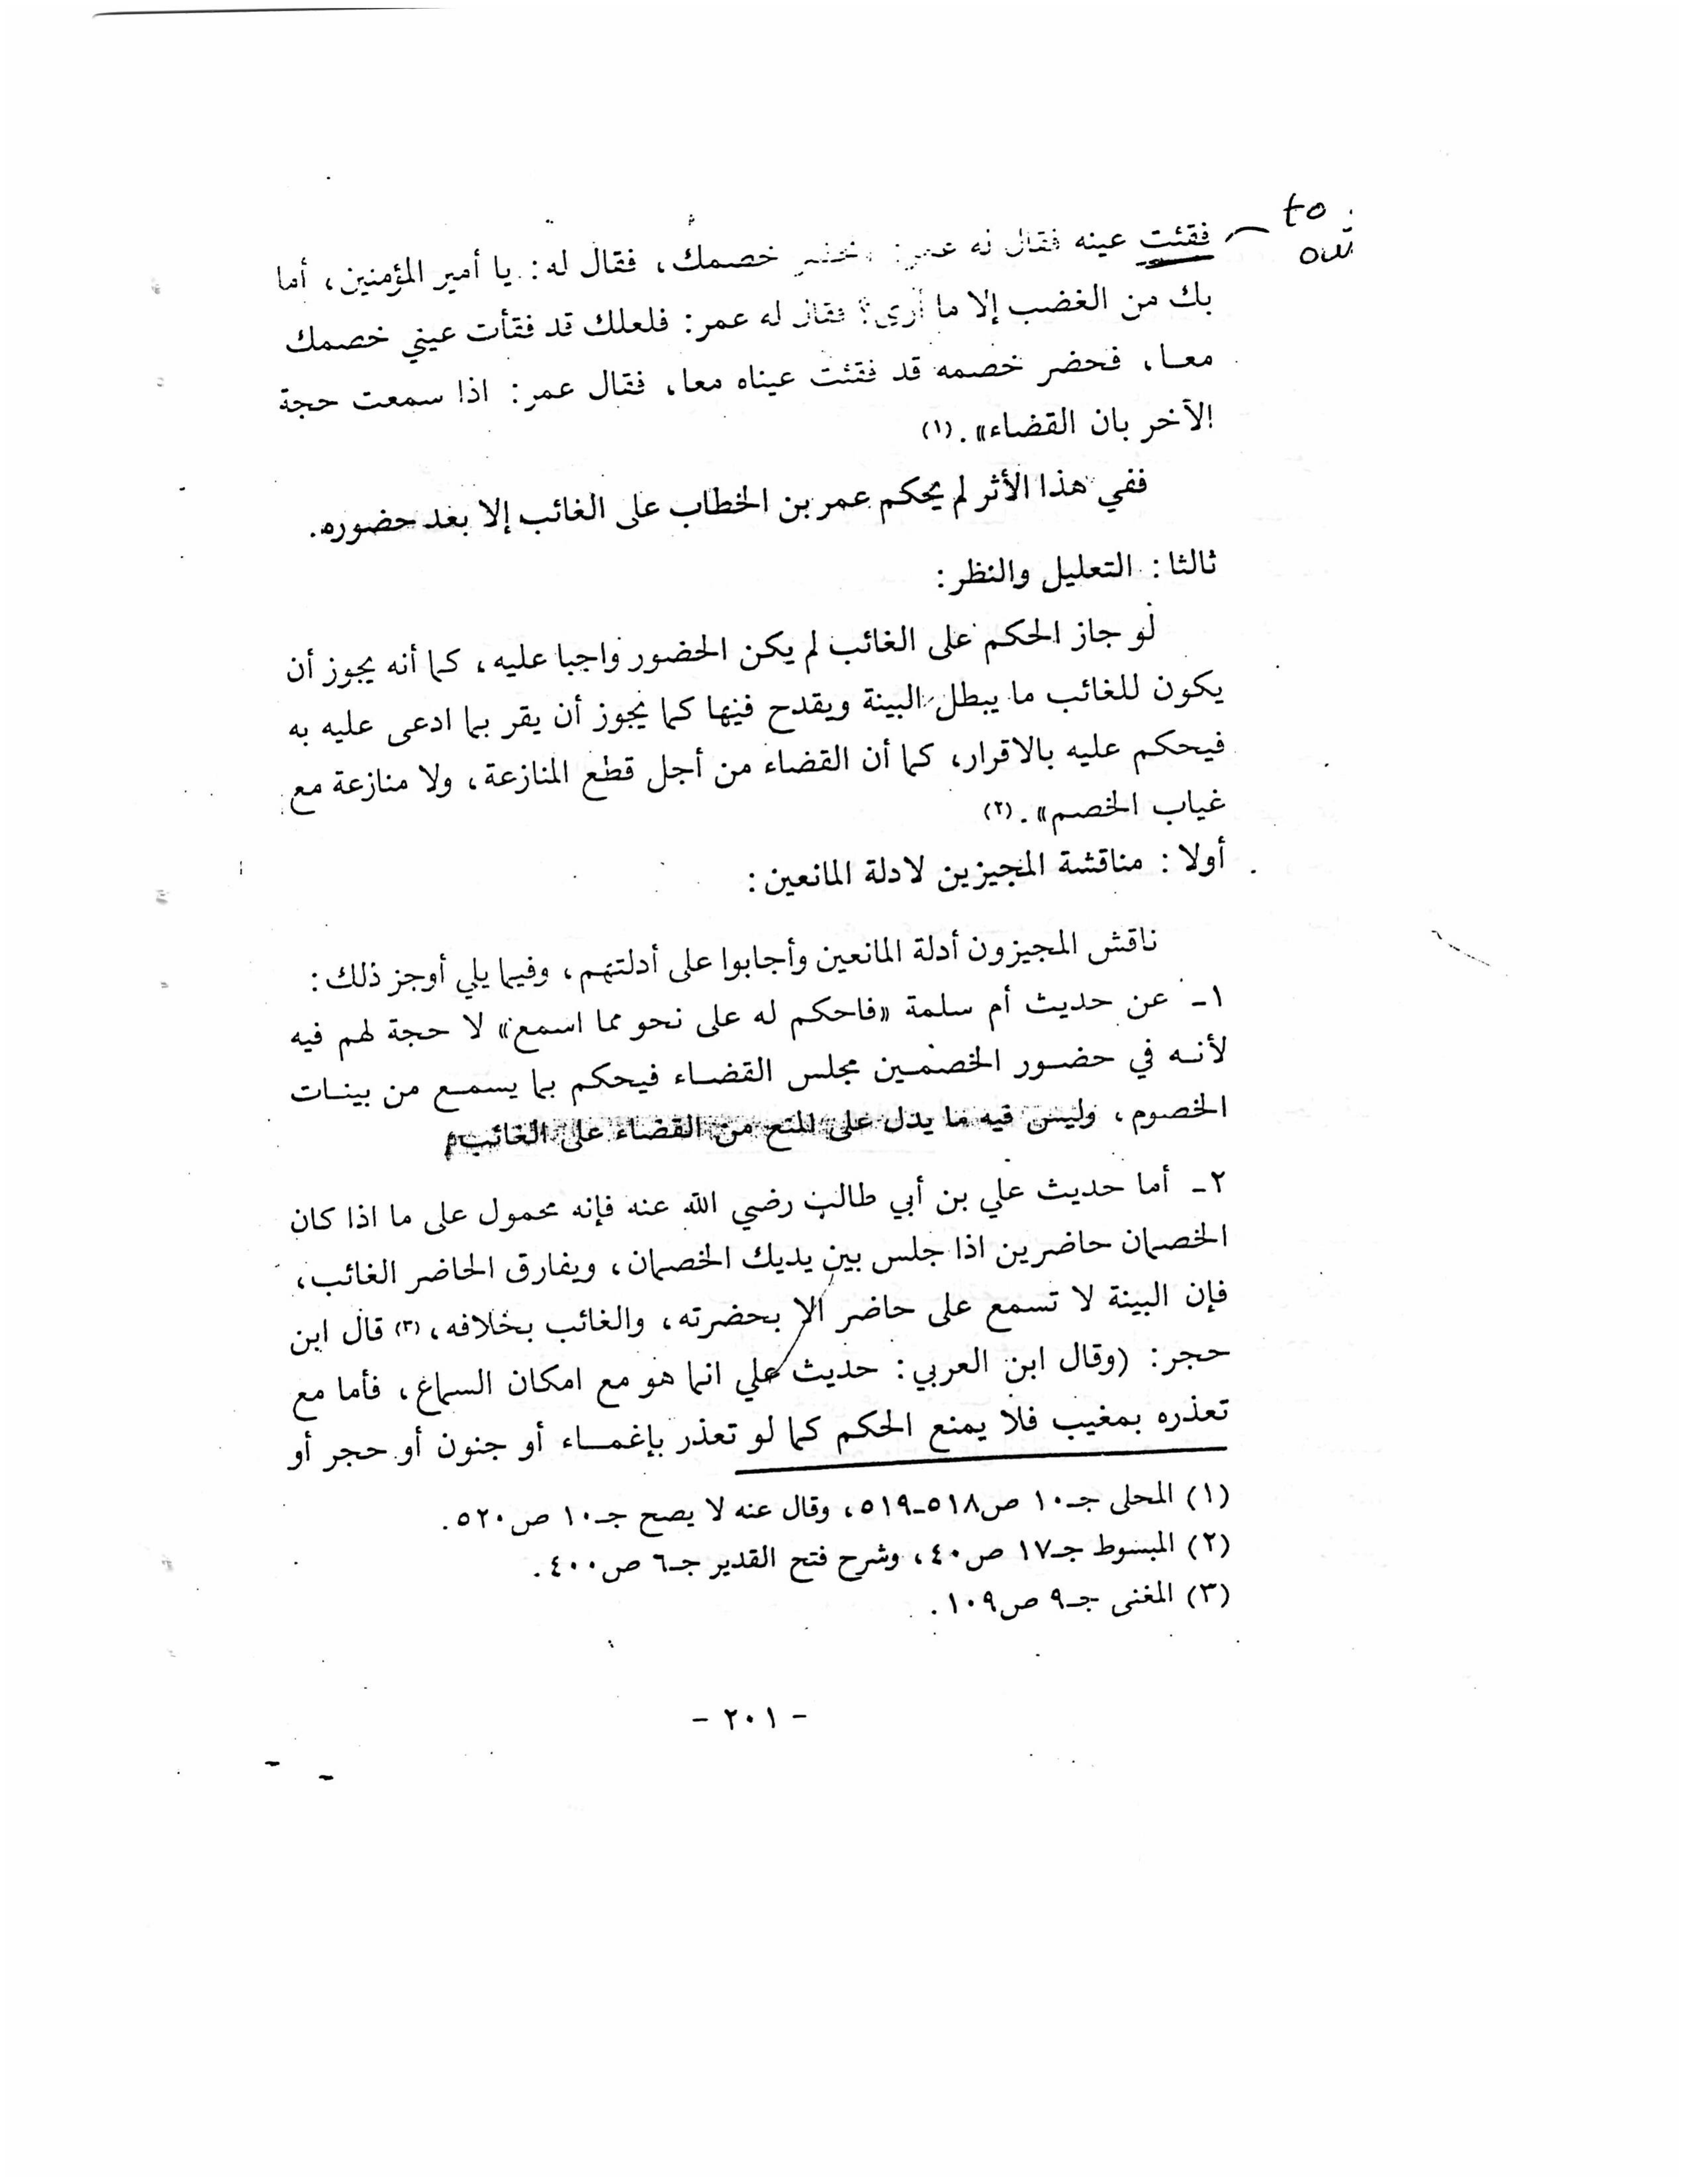 to
فقئت عينه فقال له عمر: خصمك، فقال له: يا أمير المؤمنين، أما
بك من الغضب إلا ما أرى؟ فقال له عمر: فلعلك قد فقأت عيني خصمك
معا، فحضر خصمه قد فقئت عيناه معا، فقال عمر: اذا سمعت حجة
الآخر بان القضاء». (١)
ففي هذا الأثر لم يحكم عمر بن الخطاب على الغائب إلا بعد حضوره.
ثالثا: التعليل والنظر:
لو جاز الحكم على الغائب لم يكن الحضور واجبا عليه، كما أنه يجوز أن
يكون للغائب ما يبطل البينة ويقدح فيها كما يجوز أن يقر بما ادعى عليه به
فيحكم عليه بالاقرار، كما أن القضاء من أجل قطع المنازعة، ولا منازعة مع
غياب الخصم». (٢)
أولا: مناقشة المجيزين لادلة المانعين:
ناقش المجيزون أدلة المانعين وأجابوا على أدلتهم، وفيما يلي أوجز ذلك:
١ـ عن حديث أم سلمة «فاحكم له على نحو مما اسمع» لا حجة لهم فيه
لأنه في حضور الخصمين مجلس القضاء فيحكم بما يسمع من بينات
الخصوم، وليس فيه ما يدل على المنع من القضاء على الغائب.
٢ـ أما حديث علي بن أبي طالب رضي الله عنه فإنه محمول على ما اذا كان
الخصمان حاضرين اذا جلس بين يديك الخصمان، ويفارق الحاضر الغائب،
فإن البينة لا تسمع على حاضر الا بحضرته، والغائب بخلافه، (٣) قال ابن
حجر: (وقال ابن العربي: حديث علي انما هو مع امكان السماع، فأما مع
تعذره بمغيب فلا يمنع الحكم كما لو تعذر بإغماء أو جنون أو حجر أو
(١) المحلى جـ١٠ ص٥١٨ـ٥١٩، وقال عنه لا يصح جـ١٠ ص٥٢٠.
(٢) المبسوط جـ١٧ ص٤٠، وشرح فتح القدير جـ٦ ص٤٠٠.
(٣) المغنى جـ٩ ص١٠٩.
- ٢٠١ -